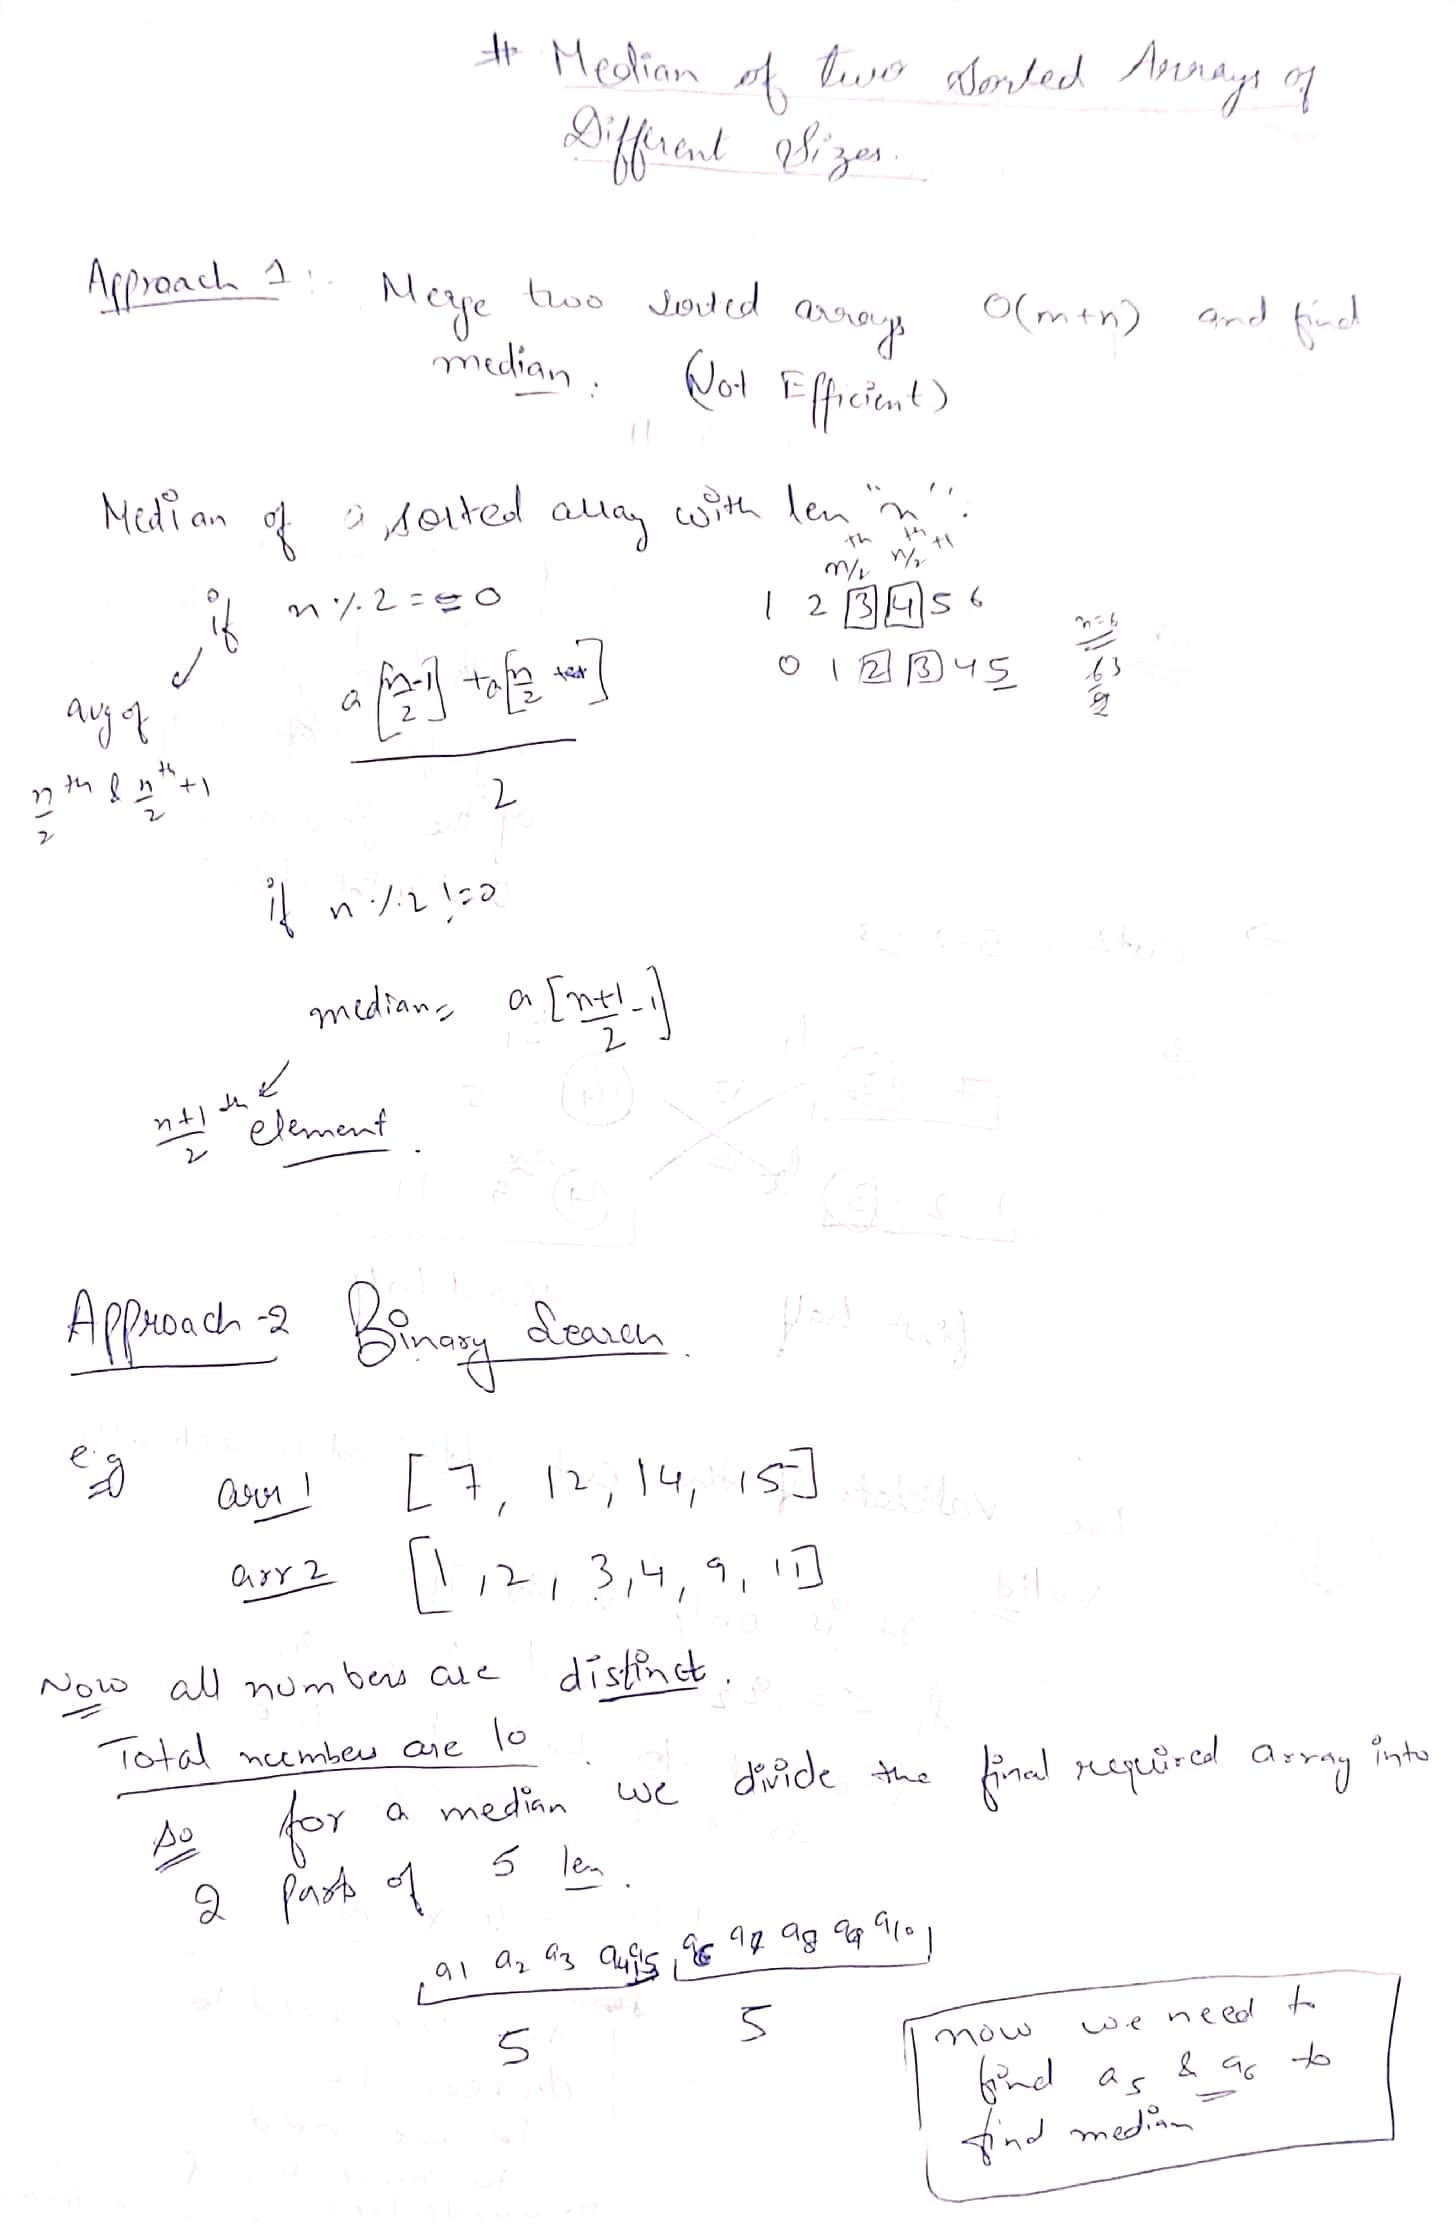 # Median of two sorted Arrays of
Different Sizes.
Approach 1 :- Merge two sorted arrays O(m+n) and find
median. (Not Efficient)
Median of a sorted array with len "n".
n/2 th n/2 th +1
if n % 2 == 0
1 2 3 4 5 6
0 1 2 3 4 5
n=6
avg of
n/2 th & n/2 th +1
a[n/2 -1] + a[n/2]
2
if n % 2 != 0
median = a[n+1/2 -1]
n+1/2 th element.
Approach-2 Binary Search.
e.g
arr1 [7, 12, 14, 15]
arr2 [1, 2, 3, 4, 9, 11]
Now all numbers are distinct.
Total numbers are 10.
So for a median we divide the final required array into
2 parts of 5 len.
a1 a2 a3 a4 a5 a6 a7 a8 a9 a10
5 5
now we need to
find a5 & a6 to
find median